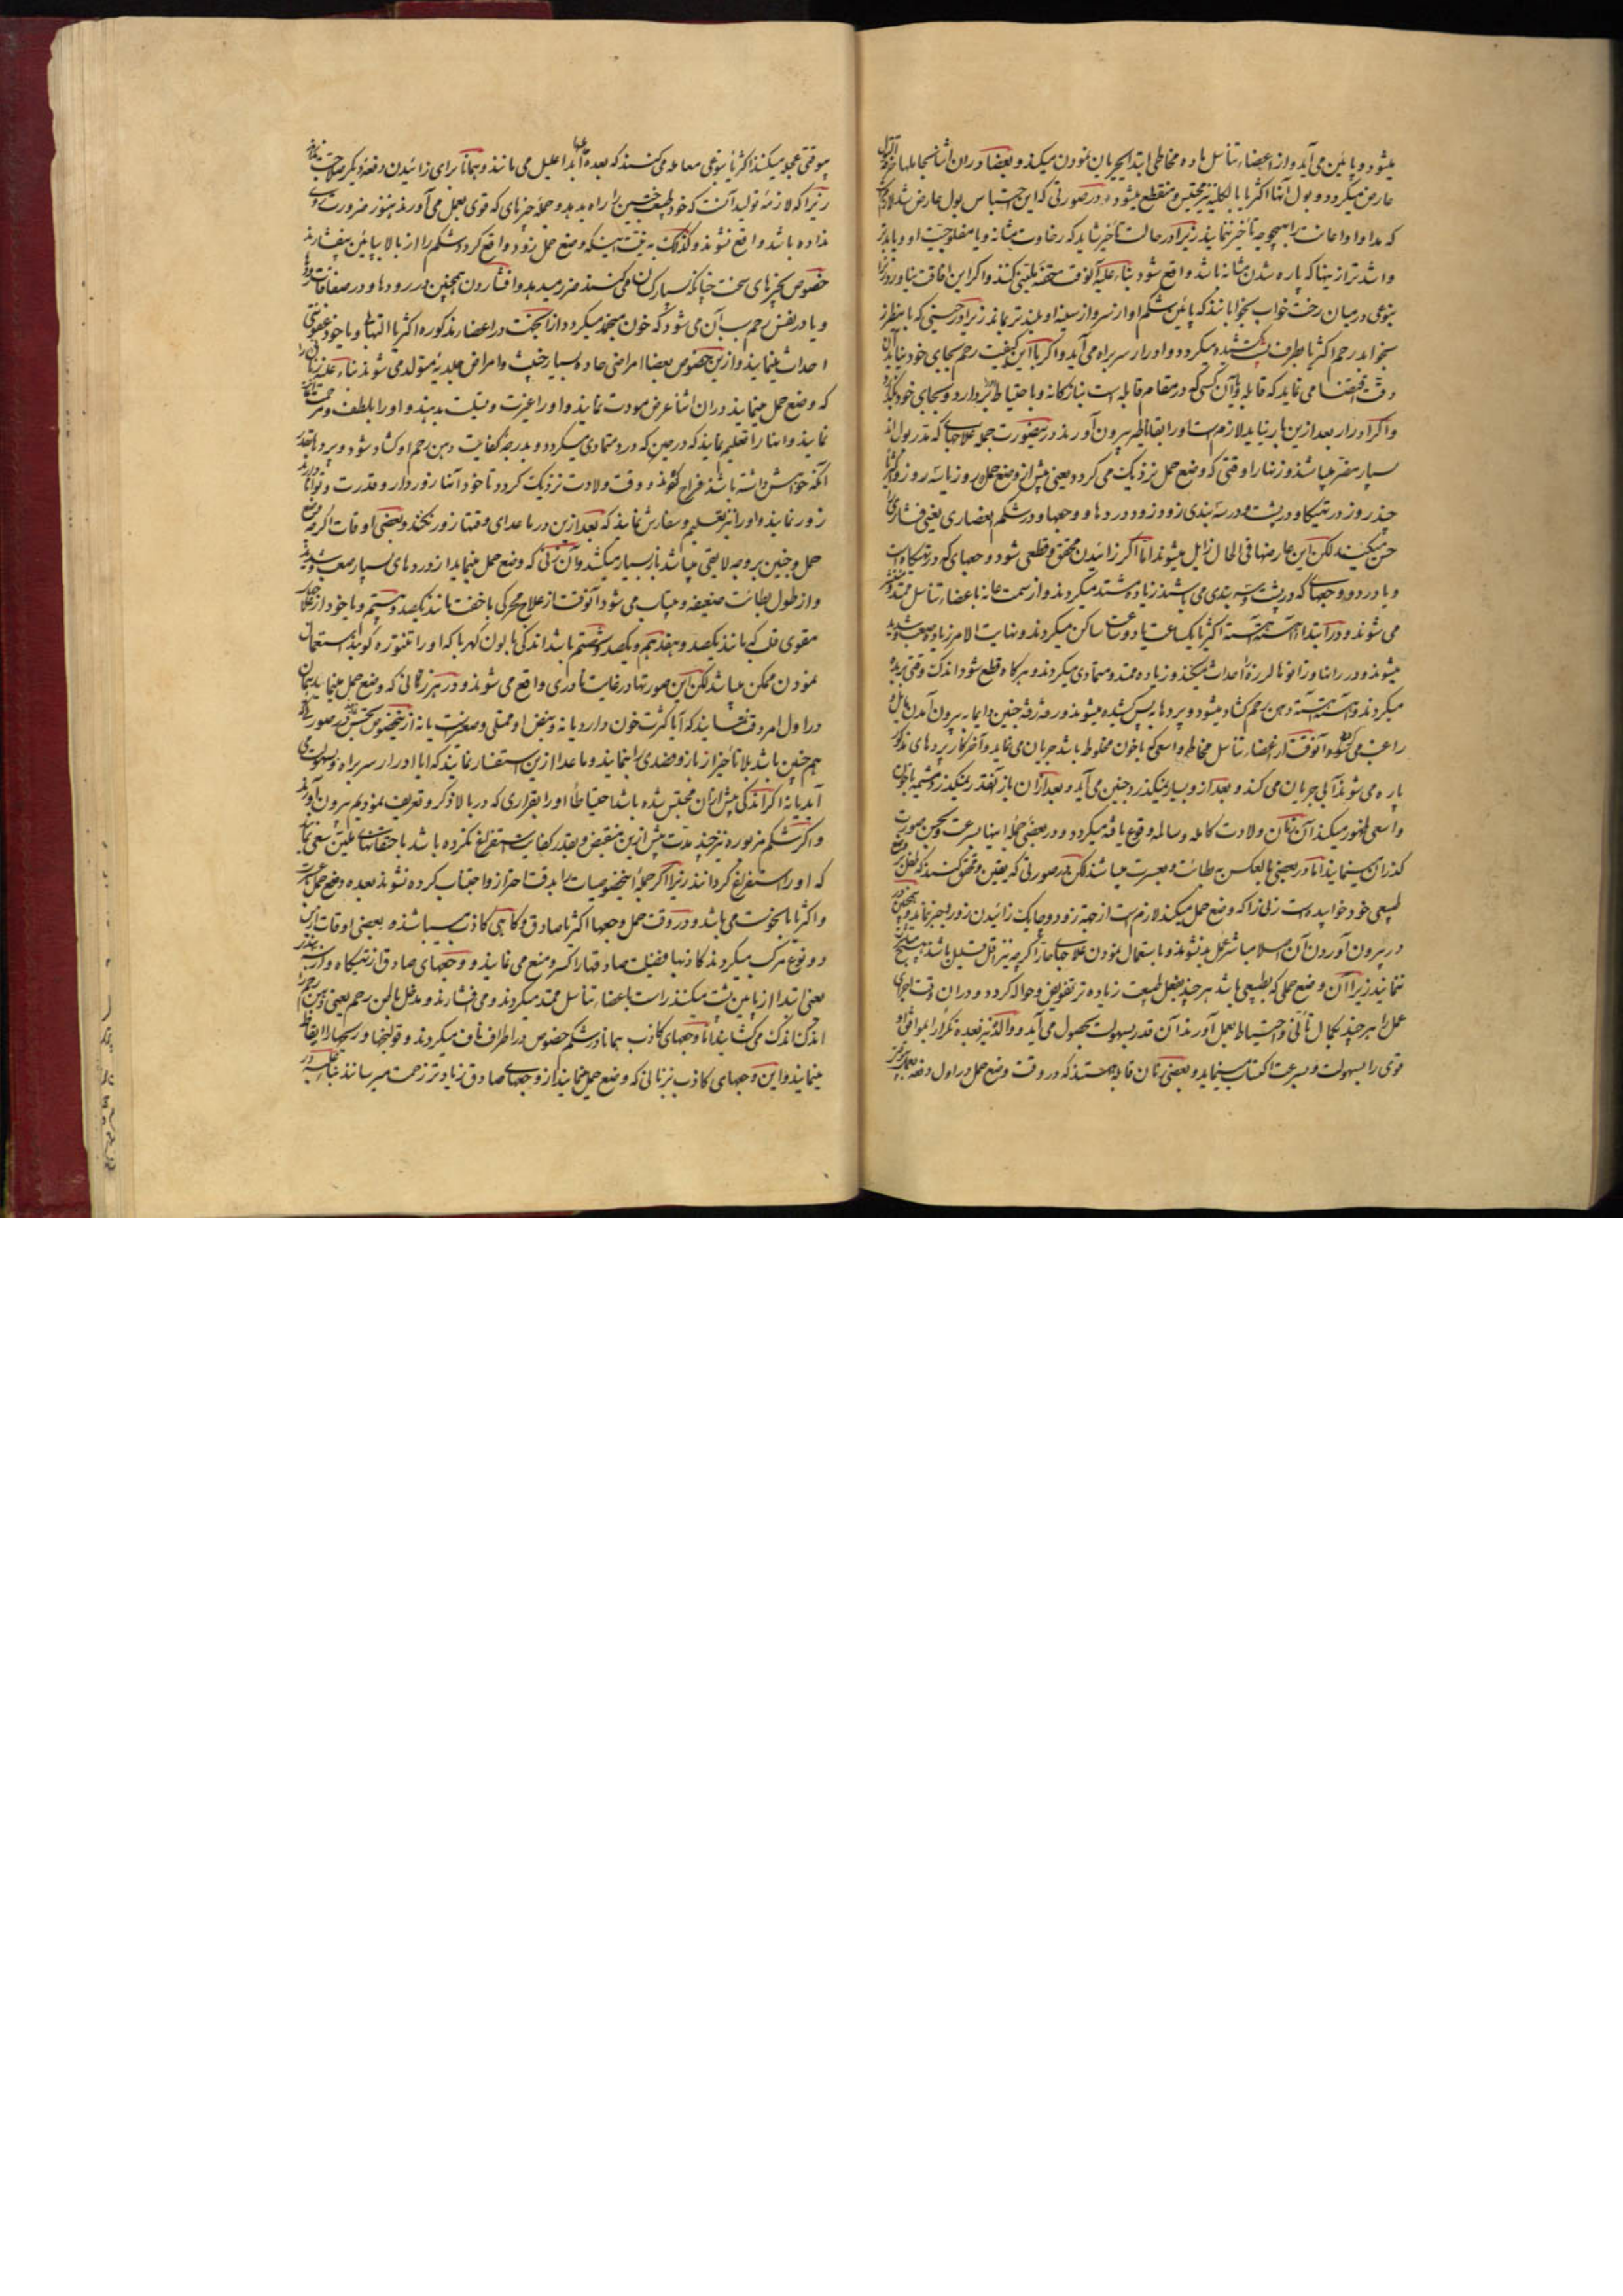 میشود و پائین می آید و از اعضاء تناسل ماده مخاطی ابتدا بجریان نمودن میکند و بعضا دران اثنا
عارض میکردد و بول آنها اکثریا بالکلیه نیز محتبس و منقطع میشود در صورتی که این احتباس بول عارض شد
که مداوا و اعانت را بهیچوجه تأخیر ننمایند زیرا در حالت تأخیر شاید که رخاوت مثانه و یا مفلوجیت او و یا بدتر
و اشد تر از بینها که پاره شدن مثانه باشد واقع شود بناء علیه آنوقت حقنه ملینی کنند و اکر این افاقت
بنوعی در میان رخت خواب بخوابانند که پائین شکم او از سر و از سینه او بلند تر بماند زیرا در حینی که باینطرز
بخوابد رحم اکثریا بطرف کشیده میکردد و ادرار سر براه می آید و اکر با این کیفیت رحم بجای خود نیاید
دقت اقتضا می نماید که قابله و یا آن کسی که در مقام قابله است بنازکانه و با احتیاط بردارد و بجای خود
و اکر ادرار بعد ازین باز نیاید لازم است او را بقاثاطیر بیرون آورند در ینصورت جمیع علاجهای که مدر بول اند
بسیار مضر میباشند و زنهار او قتی که وضع حمل نزدیک می کردد یعنی پیش از وضع حمل دو روز یا سه روز و
چند روز در تهیکاه و در پشت و در سته بندی ازو زود و دردها و وجعها و در شکم انعصاری یعنی فشاری
حس میکنند لکن این عارضها فی الحال زایل میشوند اما اکر زائیدن محقق و قطعی شود وجعهای که در تهیکاه است
و یا درد و وجعهای که در پشت و سته بندی می باشند زیاده مشتد میکردند و از سمت عانه با عضاء تناسل ممتد
می شوند و در ابتدا آهسته آهسته اکثریا یک ساعت یا دو ساعت ساکن میکردند و نهایت الامر زیاده صعب و شدید
میشوند و در رانها و زانوها لرزه احداث میکنند و زیاده ممتد و متمادی میکردند و هرکاه قطع شود اندک وقتی
میکردند و آهسته آهسته دهن رحم کشاد میشود و پردها پس کشیده میشوند و رفته رفته جنین دایما به بیرون آمدن
و آنوقت از اعضاء تناسل مخاطی واسعی که با خون مخلوط باشد جریان می نماید و آخر کار پردهای مذکور
پاره می شوند آبی جریان می کند و بعد از و بسیار نمیکذرد جنین می آید و بعد ازان باز آنقدر نمیکذرد مشیمه
واسعی ظهور میکند آن زمان ولادت کامله و سالمه وقوع یافته میکردد و در بعضی جمله اینها بسرعت و بحسن صورت
کذران مینمایند اما در بعضی بالعکس ببطائت و بعسرت میباشند لکن در صورتی که یقین و تحقق کنند که طفل
طبیعی خود خوابیده است زنی را که وضع حمل میکند لازم است از جهة زود و چابک زائیدن زور و جبر ننمایند
در بیرون آوردن آن اصلا مباشر عمل نشوند و باستعمال نمودن علاجهای حار اکرچه نیز اقل قلیل باشد
ننمایند زیرا آن وضع حملی که طبیعی باشد هر چند بفعل طبیعت زیاده تر تفویض و حواله کردد و دران وقت اجرای
عمل را هر چند بکمال تأنی و احتیاط بعمل آورند آن قدر بسهولت بحصول می آید و والده نیز بعده تکرارا
قوی را بسهولت و بسرعت اکتساب مینماید و بعضی زنان قابله هستند که در وقت وضع حمل در اول دفعه
موقتی عجله میکنند اکثریا بنوعی معامله می کنند که بعده ابدا علیل می مانند و همانا برای زائیدن دفعه دیکر
زیرا که لازمه تولید آنست که خود طبیعت جنین را راه بدهد و جمله چیزهای که قوی بعمل می آورند هنوز ضرورت
نداده باشد واقع نشوند و کذلک به نیت اینکه وضع حمل زود واقع کردد شکم را از بالا بپائین بیفشارند
خصوص بچیزهای سخت چنانکه بسیار کسان می کنند ضرر میدهد و افشاردن همچنین در رودها و در صفاقات
و یا در نفس رحم سبب آن می شود که خون منجمد میکردد و ازین جهت در اعضاء مذکوره اکثریا التهاب و یا خود عفونتی
احداث مینمایند و ازین خصوص بعضا امراض حاده بسیار خبیث و امراض عدیده متولد می شوند بناء علیه زنان را
که وضع حمل مینمایند دران اثنا عرض مودت نمایند و او را عبرت و تسلیت بدهند و او را بلطف و مرحمت
نمایند و اینها را تعلیم نمایند که در حین که درد متمادی میکردد و بدرجه کفایت دهن رحم او کشاد شود و پردها
آنکه خواهش داشته باشد فراخ شوند و وقت ولادت نزدیک کردد تا خود آنها زور دار و قدرت و توانا
زور نمایند و او را نیز تعلیم و سفارش نمایند که بعد ازین در ما عدای وقتها زور نکند و بعضی اوقات اکرچه
حمل و جنین بر وجه لایقی میباشد باز بسیار میکشد و آن زنی که وضع حمل مینماید از وردهای بسیار صعب
و از طول بطائت ضعیف و بیتاب می شود آنوقت از علاج محرکی باخفت مانند یکصد و بیستم و یا خود از علاج
مقوی قلب که مانند یکصد و هفدهم و یکصد و شصتم باشد اندکی با بون لهربا که او را تنتوره کویند استعمال
نمودن ممکن میباشد لکن این صورتها در غایت نادری واقع می شوند و در هر زنانی که وضع حمل مینماید
در اول امر دقت نمایند که آیا کثرت خون دارد یا نه و نبض او ممتلی و صعبت یا نه ازین خصوص تجسس
هم چنین باشد بلا تأخیر از بازو فصدی را نمایند و ما عدا ازین استفسار نمایند که ایا ادرار سر براه و بسهولت می
آید یا نه اکر اندکی پیش ازان محتبس شده باشد احتیاطا او را بقراری که در بالا ذکر و تعریف نمودیم بیرون آورند
و اکر شکم مزبوره نیز چند مدت پیش ازین منقبض و بقدر کفایت استفراغ نکرده باشد با حقنهای ملین سعی
که او را استفراغ کردانند زیرا اکر جمله اینخصوصیات را بدقت احتراز و اجتناب کرده نشوند بعده وضع حمل
و اکثریا بانحوست می باشد و در وقت حمل وجعها اکثریا صادق و کاهی کاذب میباشند و بعضی اوقات ازین
دو نوع مرکب میکردند کاذبها فضیلت صادقها را کسر و منع می نمایند و وجعهای صادق از تهیکاه و از
یعنی ابتدا از پائین پشت میکنند راست با عضاء تناسل ممتد میکردند و می فشارند و مدخل باطن رحم یعنی دهن
اندک اندک می کشایند اما وجعهای کاذب همانا در شکم خصوص در اطراف ناف میکردند و قولنجها و ریحها را ایقاظ
مینمایند و این وجعهای کاذب بزنانی که وضع حمل مینمایند از وجعهای صادق زیادتر زحمت میرسانند